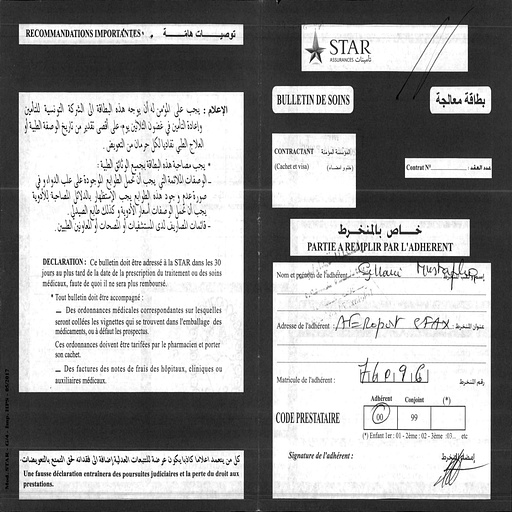 RECOMMANDATIONS IMPORTANTES توصيات هامة
الإعلام : يجب على المؤمن له أن يوجه هذه البطاقة الى الشركة التونسية للتأمين
وإعادة التأمين في غضون الثلاثين يوم على أقصى تقدير من تاريخ الوصفة الطبية أو
العلاج الطبي تفاديا لكل حرمان من التعويض.
* يجب مصاحبة هذه البطاقة بجميع الوثائق الطبية :
- الوصفات الملائمة التي يجب أن تحمل الطوابع الموجودة على علب الدواء وفي
صورة عدم وجود هذه الطوابع يجب الإستظهار بالدلائل المصاحبة للأدوية
يجب أن تحمل الوصفات أسعار الأدوية وكذلك طابع الصيدلي.
- قائمات المصاريف لدى المستشفيات أو المصحات أو المعاونين الطبيين.
DECLARATION : Ce bulletin doit être adressé à la STAR dans les 30
jours au plus tard de la date de la prescription du traitement ou des soins
médicaux, faute de quoi il ne sera plus remboursé.
* Tout bulletin doit être accompagné :
— Des ordonnances médicales correspondantes sur lesquelles
seront collées les vignettes qui se trouvent dans l'emballage des
médicaments, ou à défaut les prospectus.
Ces ordonnances doivent être tarifées par le pharmacien et porter
son cachet.
— Des factures des notes de frais des hôpitaux, cliniques ou
auxiliaires médicaux.
كل من يتعمد اعلاما كاذبا يكون عرضة للتتبعات العدلية إضافة الى فقدانه حق التمتع بالتعويضات.
Une fausse déclaration entrainera des poursuites judiciaires et la perte du droit aux
prestations.
STAR
ASSURANCES تأمينات
BULLETIN DE SOINS بطاقة معالجة
CONTRACTANT المؤسسة المؤمنة
(Cachet et visa) (ختم وامضاء)
Contrat N° عدد العقد :
خاص بالمنخرط
PARTIE A REMPLIR PAR L'ADHERENT
Nom et prénom de l'adhérent Mustapha
Adresse de l'adhérent : AEROport SFAX عنوان المنخرط :
Matricule de l'adhérent : رقم المنخرط
Adhérent Conjoint (*)
CODE PRESTATAIRE 00 99
(*) Enfant 1er : 01 - 2ème : 02 - 3ème :03... etc
Signature de l'adhérent : إمضاء المنخرط